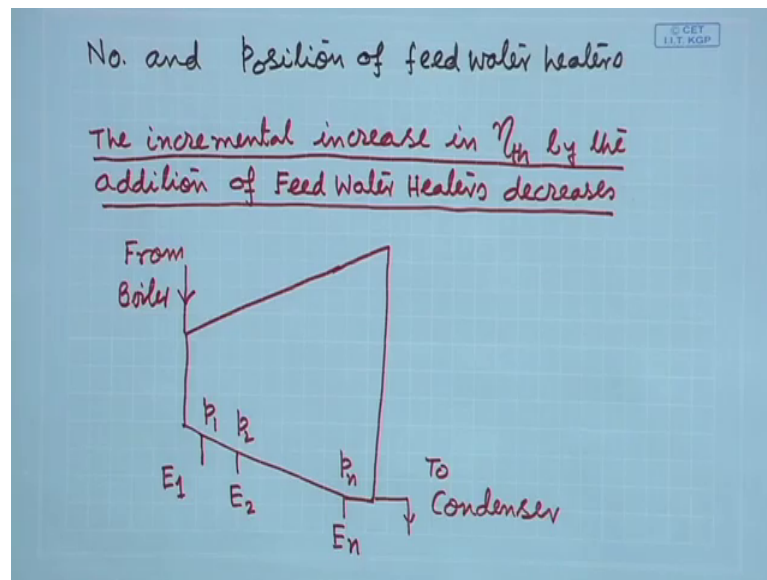 © CET
I.I.T. KGP
No. and Position of feed water heaters
The incremental increase in ηth by the
addition of Feed Water Heaters decreases
From
Boiler
p1
p2
pn
E1
E2
En
To
Condenser